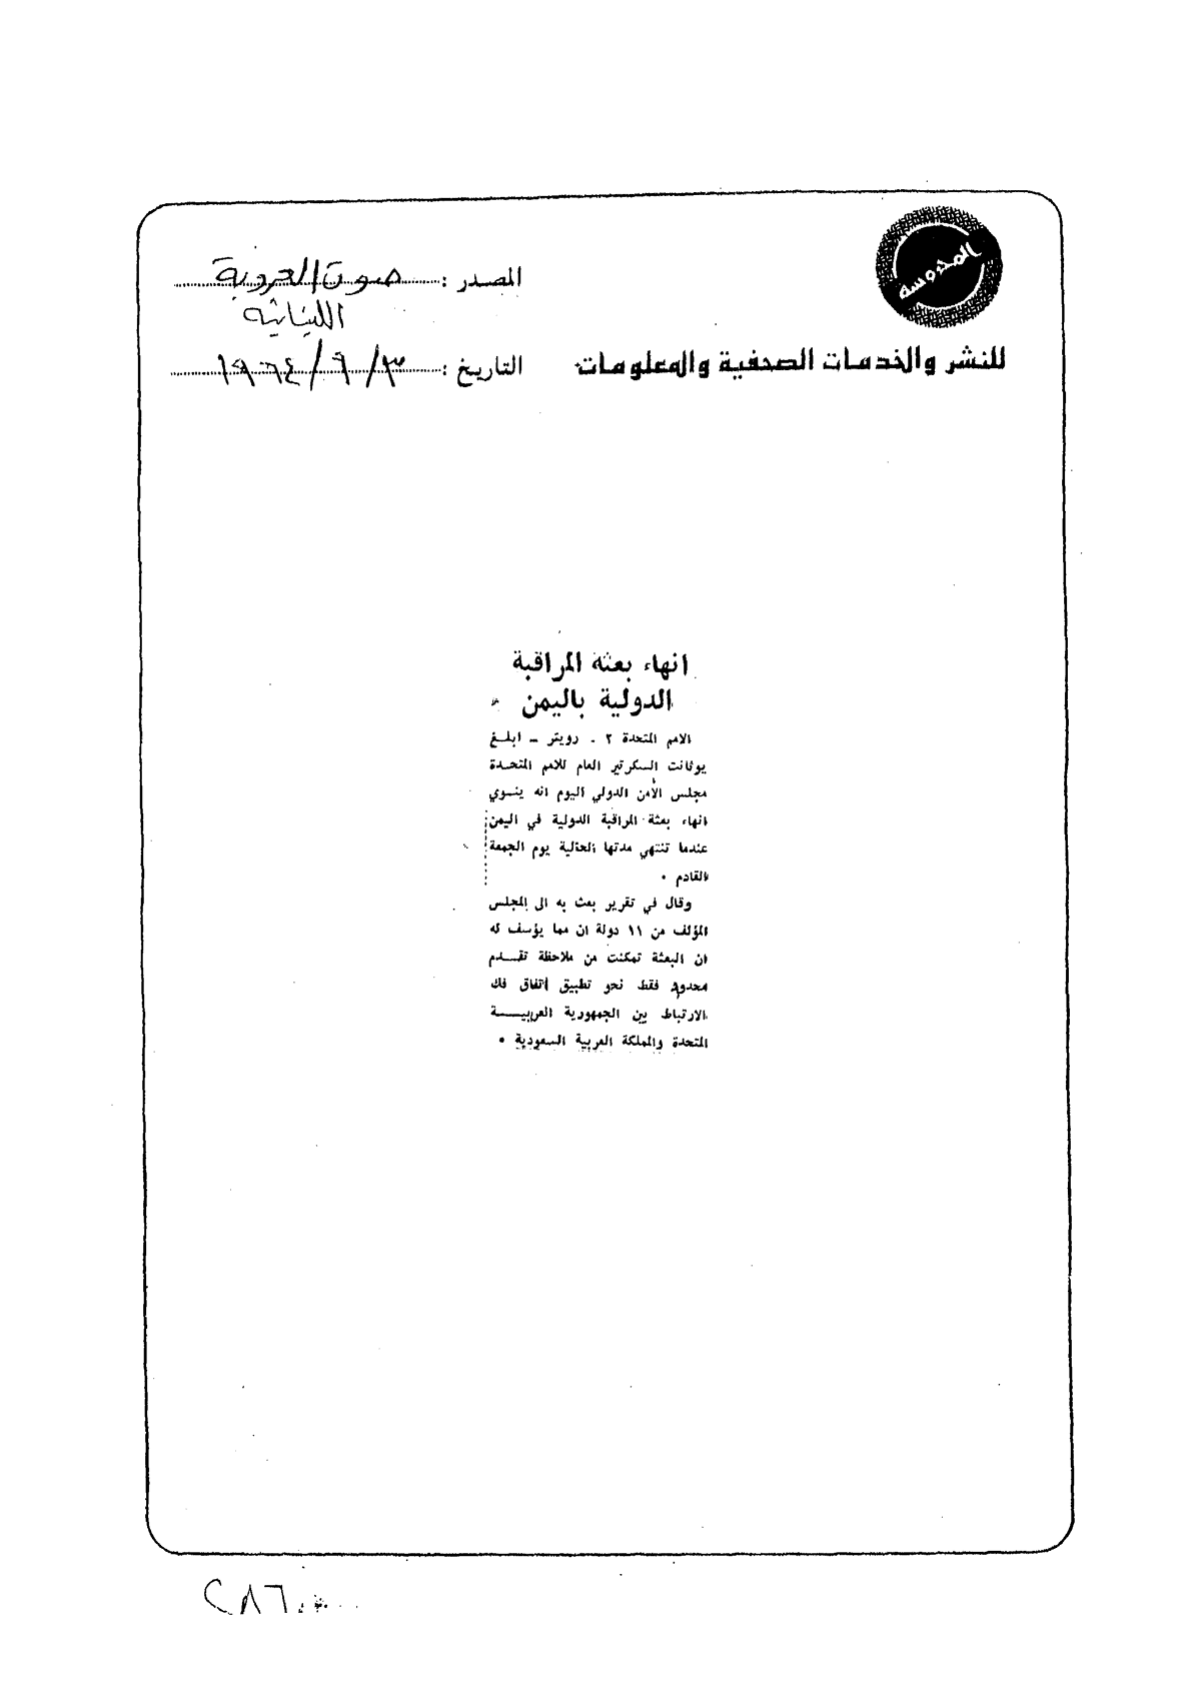 المحروسة
للنشر والخدمات الصحفية والمعلومات
المصدر : صوت العروبة
اللبنانية
التاريخ : ٣/ ٩/ ١٩٦٤
انهاء بعثة المراقبة
الدولية باليمن
الامم المتحدة ٢ . رويتر ــ ابلغ
يوثانت السكرتير العام للامم المتحدة
مجلس الأمن الدولي اليوم انه ينوي
انهاء بعثة المراقبة الدولية في اليمن
عندما تنتهي مدتها الحالية يوم الجمعة
القادم •
وقال في تقرير بعث به الى المجلس
المؤلف من ١١ دولة ان مما يؤسف له
ان البعثة تمكنت من ملاحظة تقدم
محدود فقط نحو تطبيق اتفاق فك
الارتباط بين الجمهورية العربية
المتحدة والمملكة العربية السعودية •